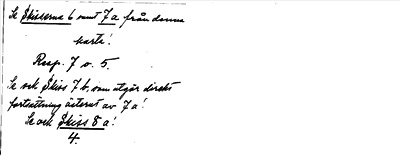 Se Skisserna 6 samt 7a från denna
karta!
Resp. 7 o. 5.
Se ock Skiss 7b, som utgör direkt
fortsättning österut av 7a!
Se ock Skiss 8a!
4.